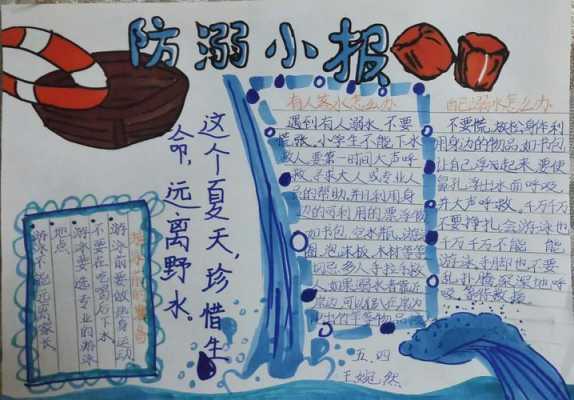 防溺小报
有人落水怎么办
遇到有人溺水,不要
慌张,小学生不能下水
救人,要第一时间大声呼
救,寻求大人或专业人
员的帮助,并且利用身
边的可利用的漂浮物
如书包,空水瓶,游泳
圈,泡沫板,木材等等
切忌,多人手拉手救
人,如果溺水者靠近
岸边,可以
竹竿等物品
自己溺水怎么办
不要慌,放松身体利
用身边的物品,如书包
让自己浮起来,要使
鼻孔浮出水面呼吸,
并大声呼救,千万千万
不要挣扎,会游泳也
千万千万不能
游泳手脚也不要
乱扑腾,深深地呼
吸,等待救援
这个夏天,珍惜生
命,远离野水。
游泳前要做热身运动
不要在吃喝后下水
游泳要选专业的游泳
地点
游泳不能远离家长
五.四
王婉然